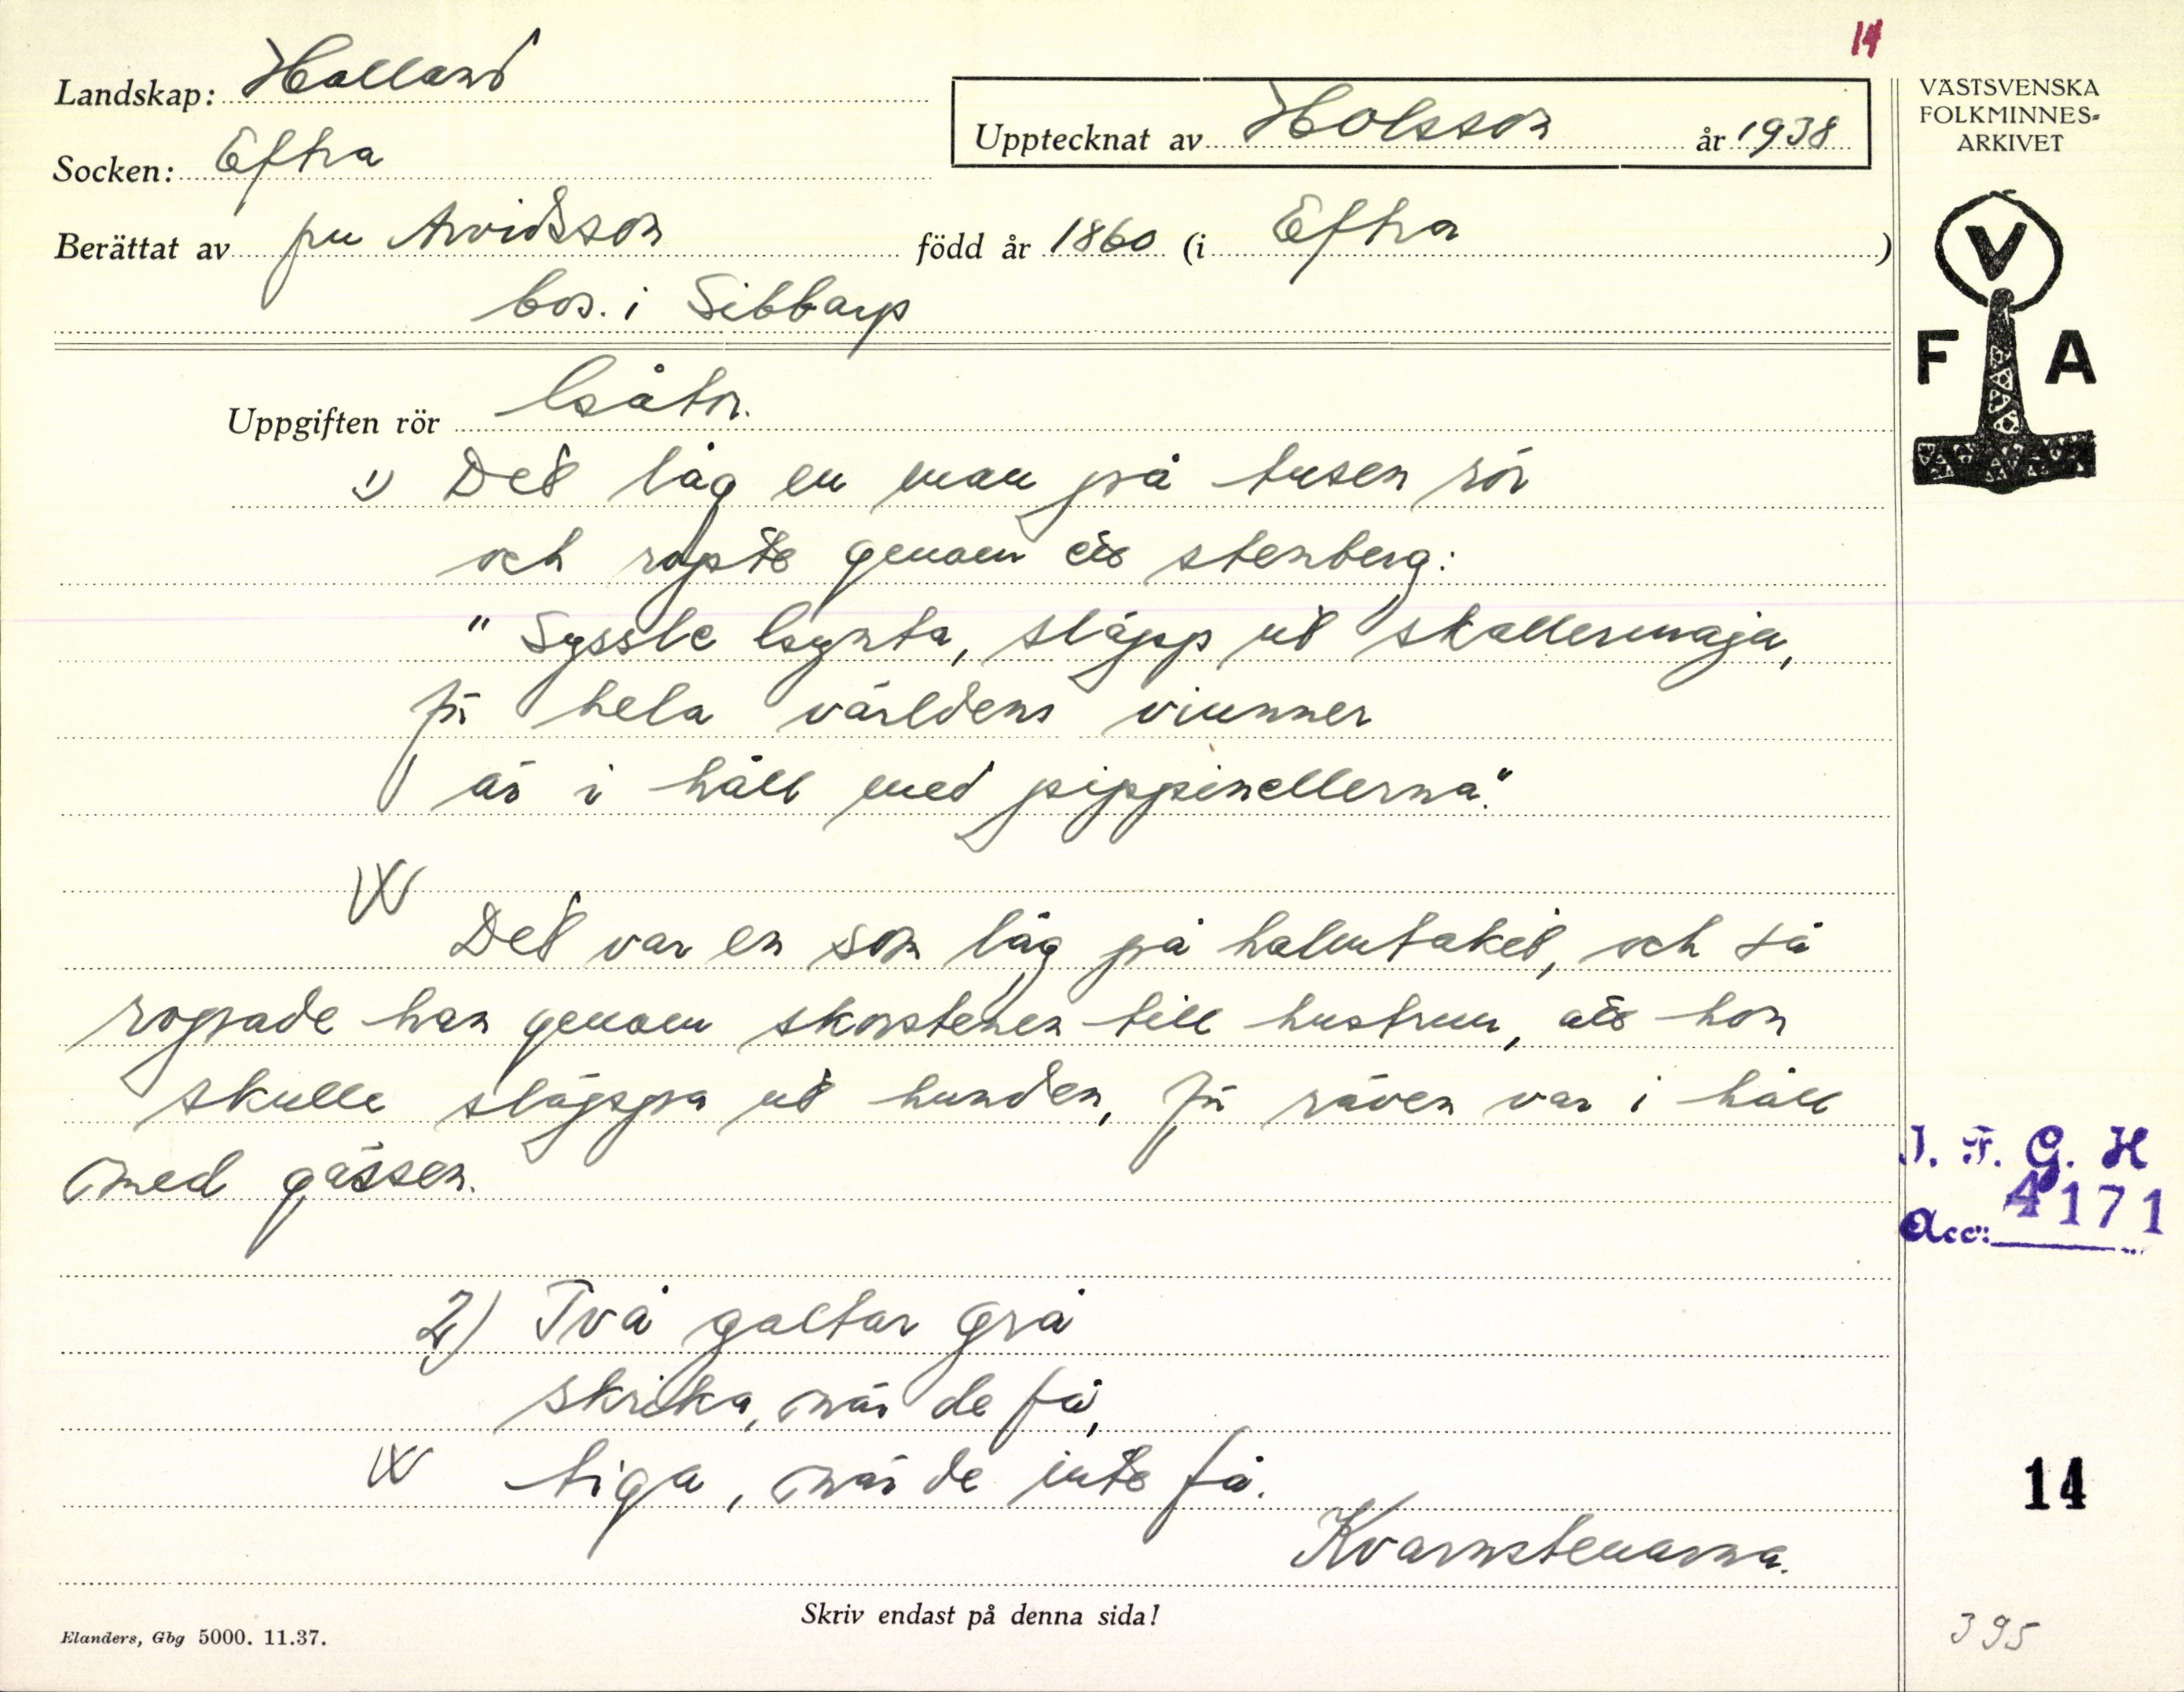 14
Landskap: Halland
Upptecknat av Holsson år 1938
VÄSTSVENSKA
FOLKMINNES-
ARKIVET
Socken: Eftra
Berättat av fru Arvidsson född år 1860 (i Eftra)
bos. i Sibbarp
V
F A
Uppgiften rör Gåtor.
1) Det låg en man på tusen rör
och ropte genom ett stenberg:
" Syssle lsynta, släpp ut skallermaja,
för hela världens vinner
är i håll med pippinellerna."
Det var en som låg på halmtaket, och så
ropade han genom skorstenen till hustrun, att hon
skulle släppa ut hunden, för räven var i håll
med gässen.
I. F. G. H
Acc: 4171
2) Två galtar grå
skrika, när de få,
tiga, när de inte få.
14
Kvarnstenarna.
Skriv endast på denna sida!
Elanders, Gbg 5000. 11.37.
395